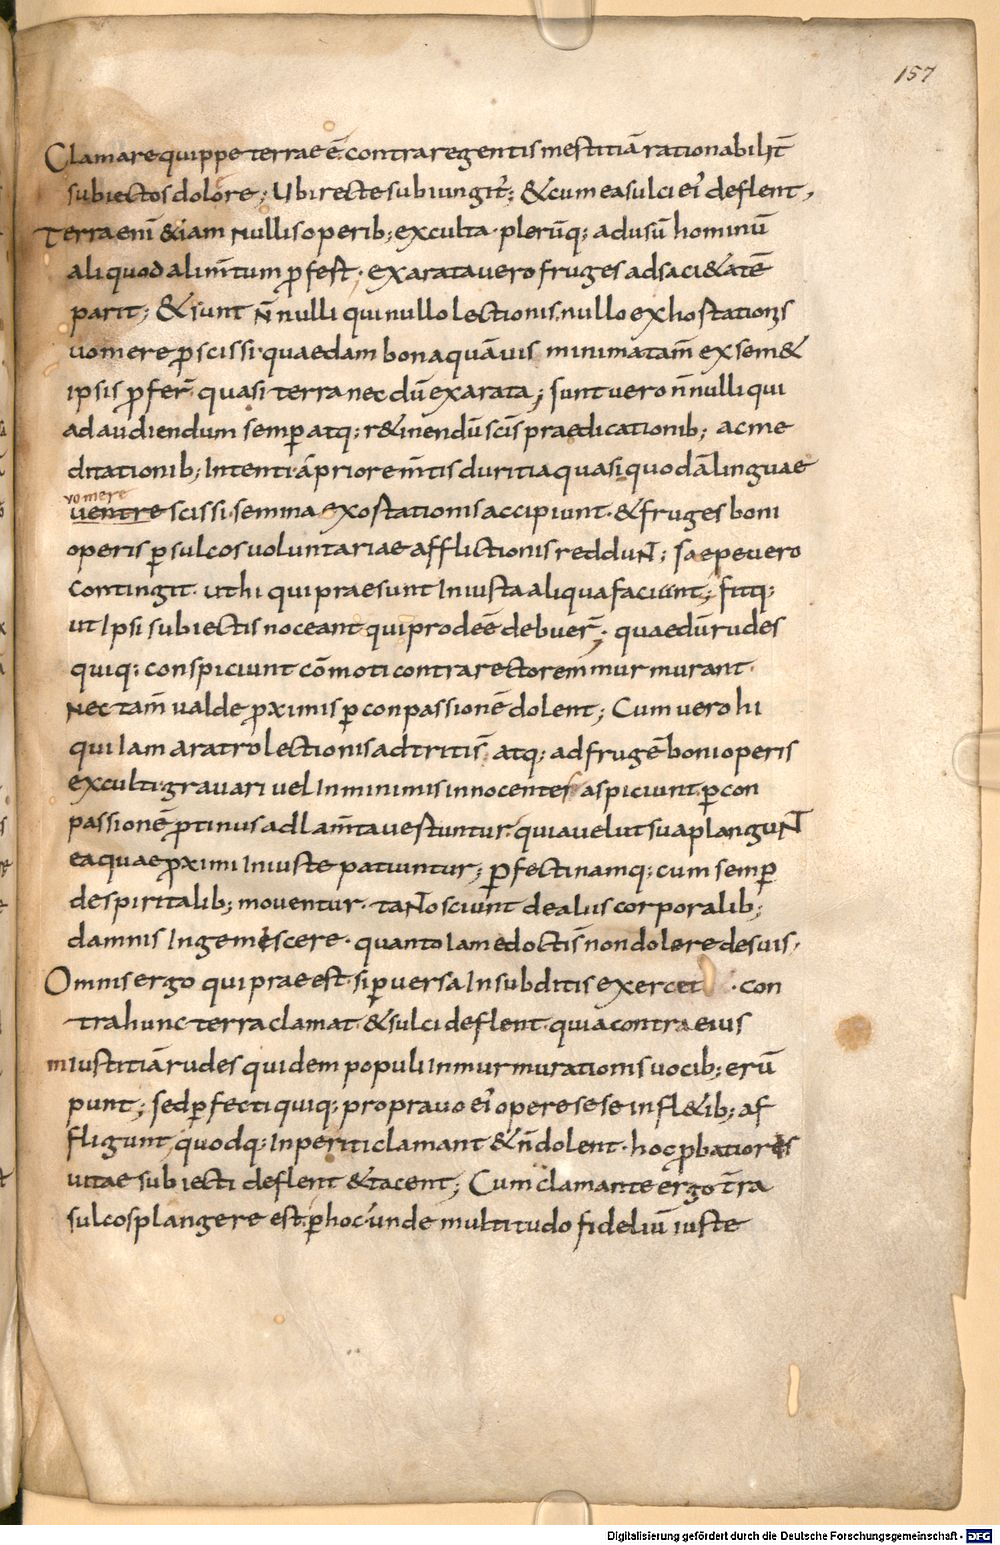 157
Clamare quippe terrae ē contra regentis inestitiā rationabilit̄
subiectos dolore; Ubi recte subiungit̄; & cum ea sulci ei' deflent,
Terra enī &iam nullis operib; exculta · plerūq; ad usū hominū
aliquod alim̄tum ꝓfest, exarata vero fruges ad saci&atē
parit; & sunt n̄ nulli qui nullo lectionis, nullo exhostationis
uomere ꝓscissi quaedam bona quāuis minima tam̄ ex sem&
ipsis ꝓfer̄ quasi terra nec dū exarata; sunt uero n̄ nulli qui
ad audiendum semꝑ atq; r&inendū scīs praedicationib; ac me
ditationib; Intenti ā priore m̄tis duritia quasi quodā linguae
vomere
uentre scissi · semina exostationis accipiunt · & fruges boni
operis ꝑ sulcos voluntariae afflictionis reddunt; saepe vero
contingit · ut hi qui praesunt Iniusta aliqua faciunt; fitq;
ut Ipsi subiectis noceant qui prodeē debuer̄; quae dū rudes
quiq; conspiciunt cōmoti contra rectorem murmurant ·
Nec tam̄ ualde ꝓximis ꝑ conpassionē dolent; Cum vero hi
qui Iam aratro lectionis adtritis̄ atq; ad frugē boni operis
exculti · gravari uel In minimis innocentes aspiciunt · ꝑ con
passionē ꝓtinus ad lam̄ta uestuntur · quia uelut sua plangunt
ea quae ꝓximi Iniuste patiuntur; ꝑfecti namq; cum semꝑ
de spiritalib; moventur · tanto sciunt de aliis corporalib;
damnis Ingemiscere · quanto Iam edoctis̄ non dolere de suis,
Omnis ergo qui praeest · si ꝑversa In subditis exercet · con
tra hunc terra clamat · & sulci deflent · quia contra eius
inIustitiā rudes quidem populi In murmurationis vocib; erū
punt; sed ꝑfecti quiq; pro pravo ei' opere sese In fl&ib; af
fligunt, quodq; Inperiti clamant & n̄ dolent · hoc ꝓbatiores
uitae subiecti deflent & tacent; Cum clamante ergo t̄ra
sulcos plangere est · ꝑ hoc unde multitudo fideliū iuste
Digitalisierung gefördert durch die Deutsche Forschungsgemeinschaft - DFG